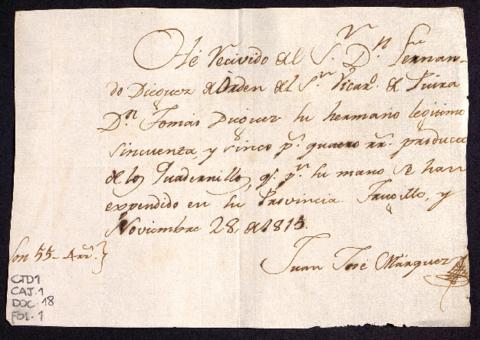 He recivido del S.r D.n Fernan-
do Dieguez de Orden del S.or Vicar.o de Piura
D.n Tomas Dieguez su hermano legitimo
sincuenta y cinco p.s quatro rr.s producto
de los Quadernillos, q.e p.r su mano se han
expendido en su Provincia. Truxillo, y
Noviembre 28 de 1815.
Son 55 - 4 rr.s}
Juan José Márquez
CTD1
CAJ. 1
DOC. 18
FOL. 1